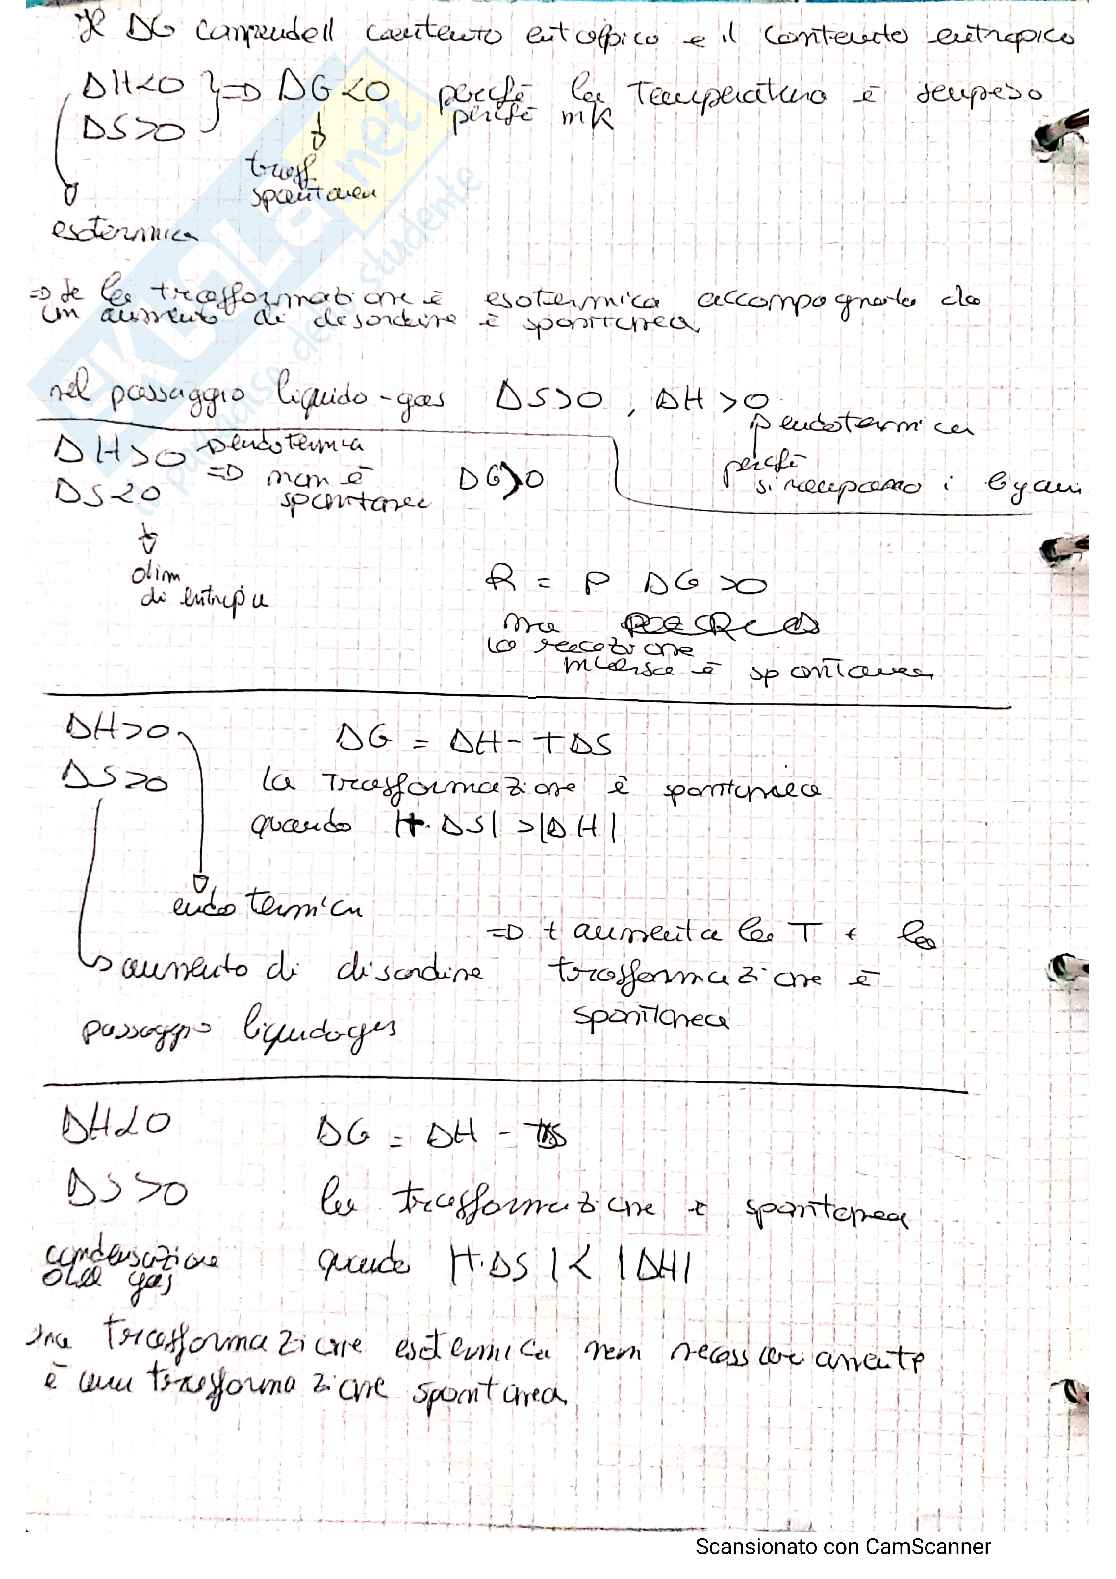 Il ΔG comprende il contenuto entalpico e il contenuto entropico
ΔH<0 } => ΔG<0 perché la Temperatura è sempre >0
ΔS>0
perché in K
trasf.
spontanea
esotermica
=> Se la trasformazione è esotermica accompagnata da
un aumento di disordine è spontanea
nel passaggio liquido-gas ΔS>0, ΔH>0
endotermica
perché
si rompono i legami
ΔH>0 endotermica
ΔS<0 => non è
spontanea
ΔG>0
dim
di entropia
R = P ΔG>0
ma
la reazione
inversa è spontanea
ΔH>0
ΔS>0
ΔG = ΔH - TΔS
la trasformazione è spontanea
quando |T·ΔS| > |ΔH|
endotermica
=> + aumenta la T + la
trasformazione è
spontanea
aumento di disordine
passaggio liquido gas
ΔH<0
ΔG = ΔH - TΔS
ΔS>0
la trasformazione è spontanea
quando |T·ΔS| < |ΔH|
condensazione
del gas
una trasformazione esotermica non necessariamente
è una trasformazione spontanea
SKUOLA.net
il paradiso dello studente
Scansionato con CamScanner